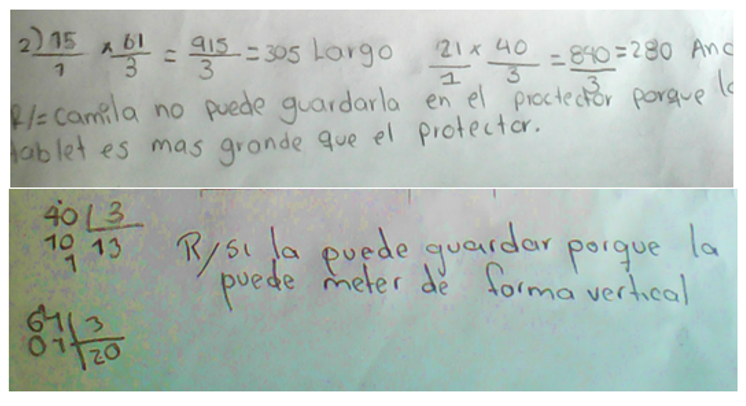 2) 15/1 x 61/3 = 915/3 = 305 Largo 21/1 x 40/3 = 840/3 = 280 Anc
R/= camila no puede guardarla en el proctector porque la
tablet es mas grande que el protector.
40 | 3
10 13
1
R/si la puede guardar porque la
puede meter de forma vertical
61 | 3
01 20